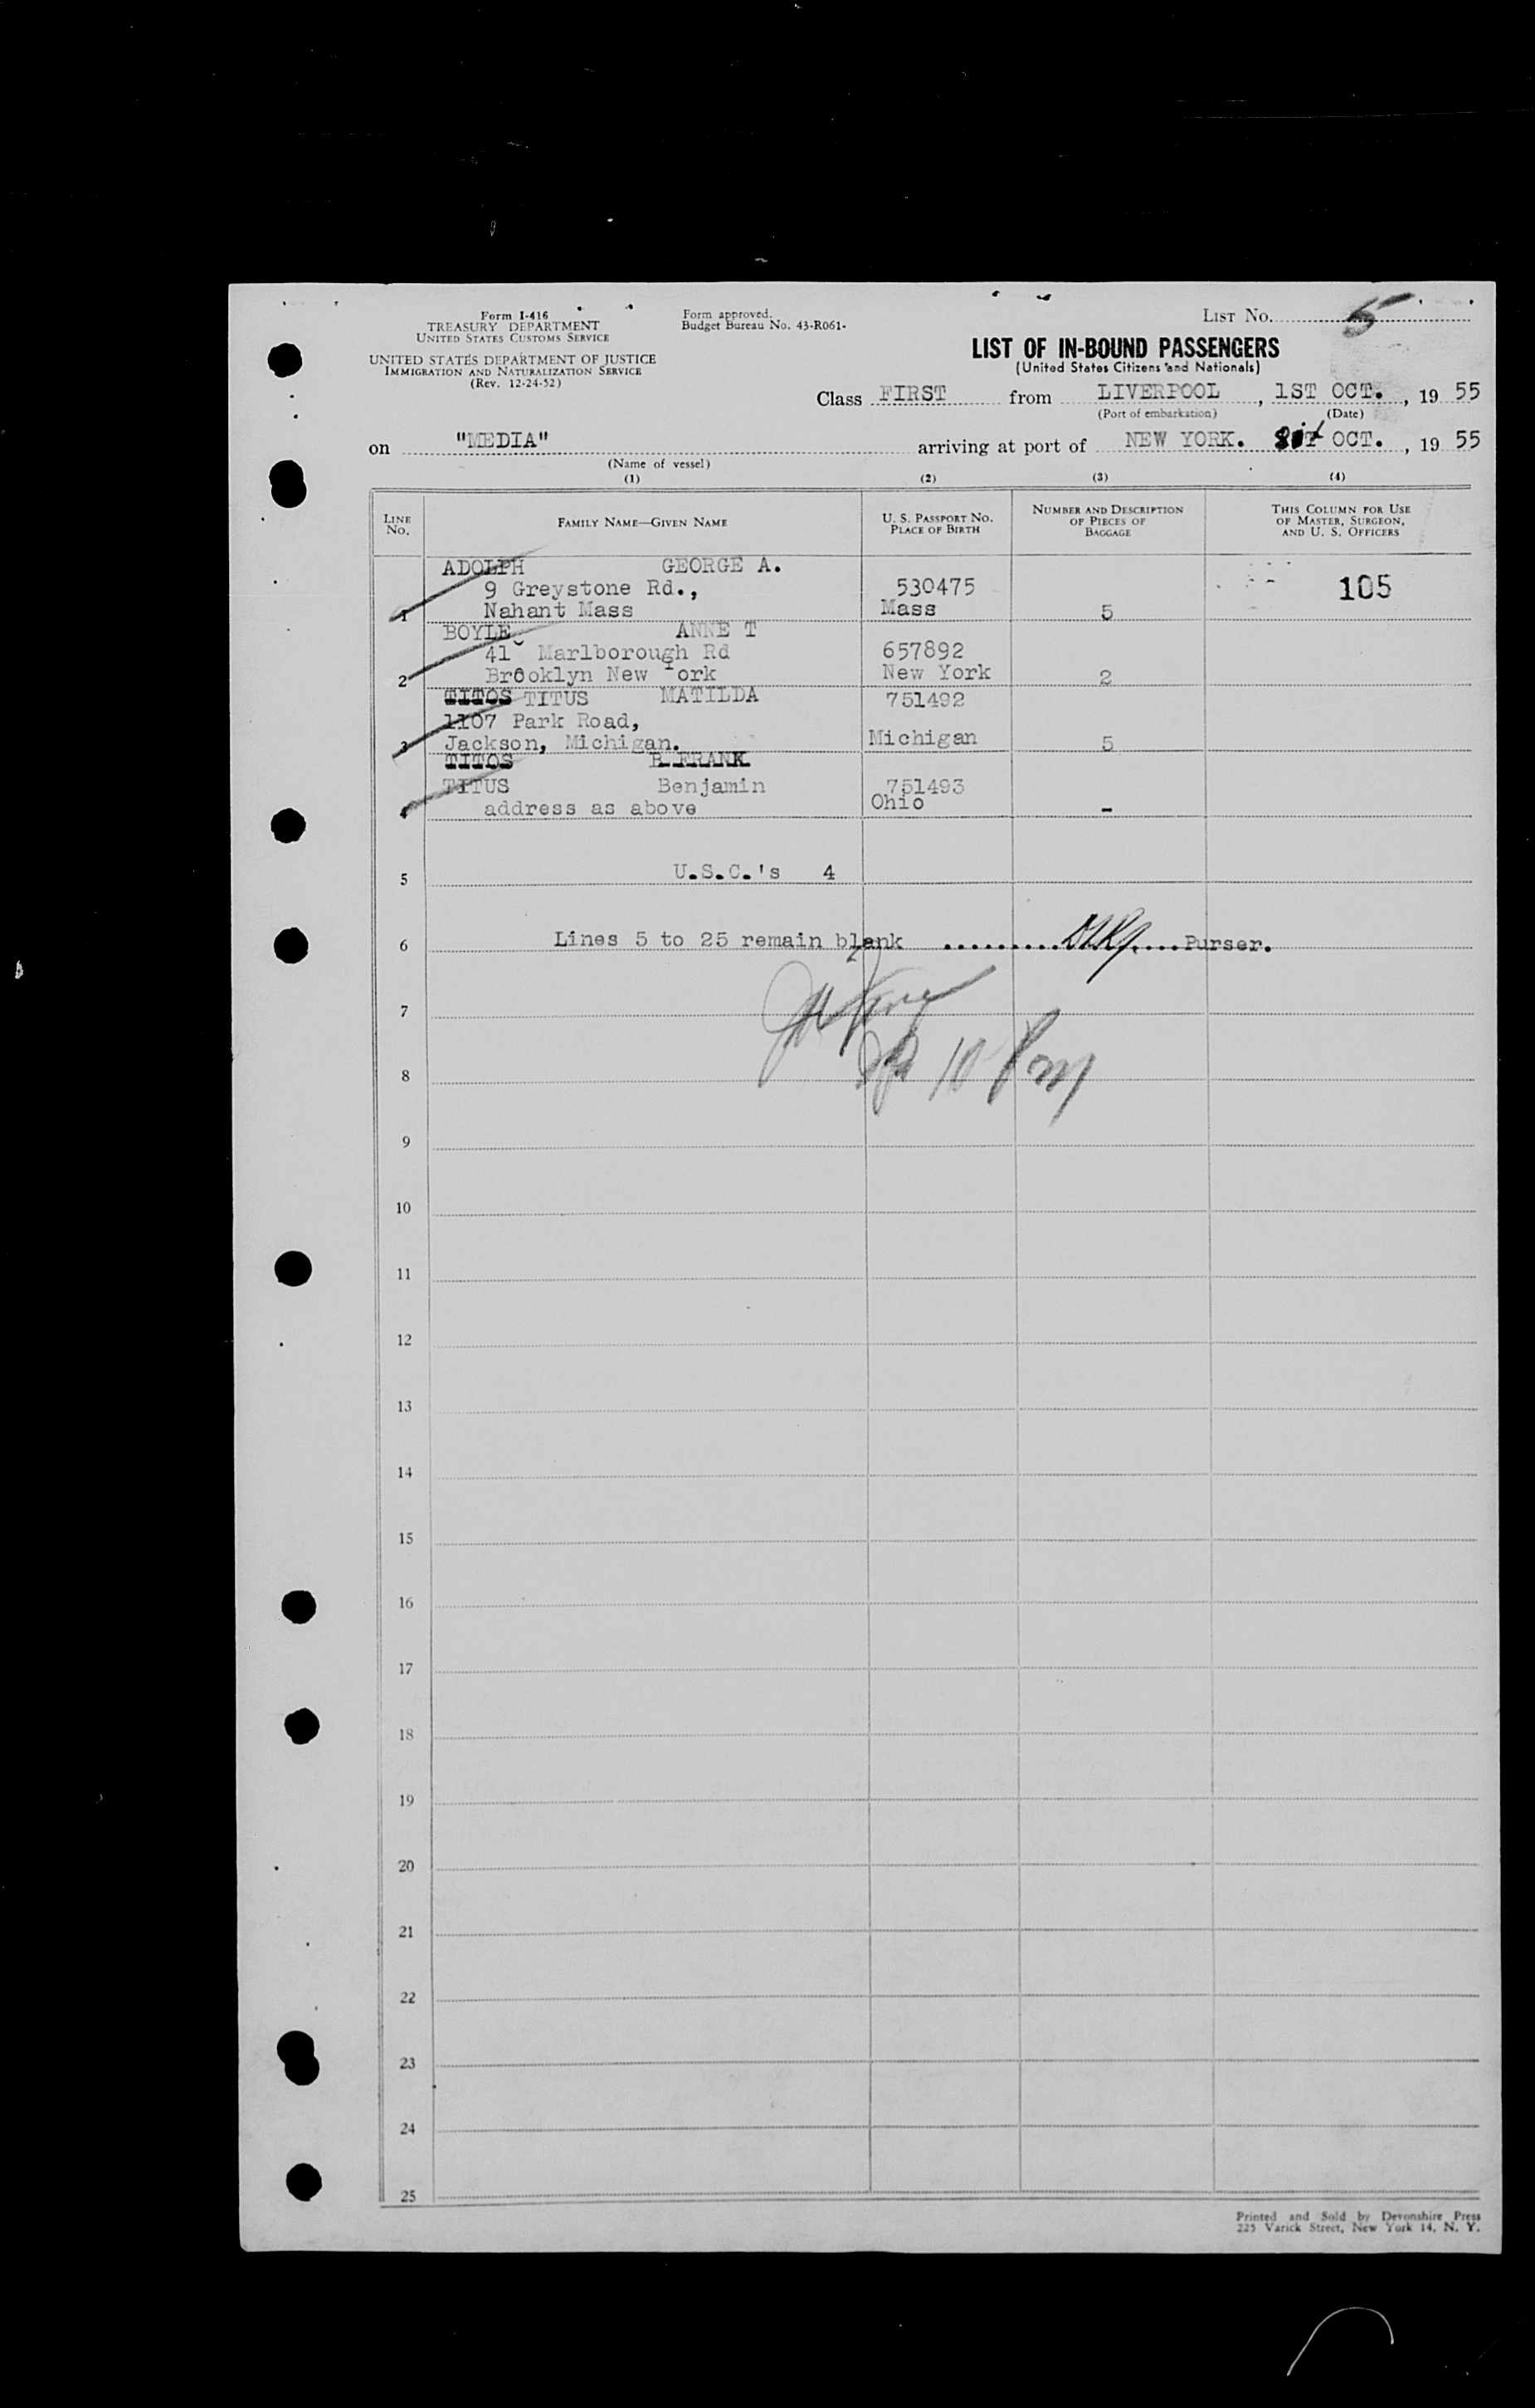 Form I-416
TREASURY DEPARTMENT
UNITED STATES CUSTOMS SERVICE
UNITED STATES DEPARTMENT OF JUSTICE
IMMIGRATION AND NATURALIZATION SERVICE
(Rev. 12-24-52)
Form approved.
Budget Bureau No. 43-R061-
LIST NO. 5
LIST OF IN-BOUND PASSENGERS
(United States Citizens and Nationals)
Class FIRST from LIVERPOOL, 1ST OCT., 19 55
(Port of embarkation) (Date)
on "MEDIA" arriving at port of NEW YORK. OCT., 19 55
(Name of vessel)
(1) (2) (3) (4)
LINE NO.
FAMILY NAME—GIVEN NAME
U. S. PASSPORT NO.
PLACE OF BIRTH
NUMBER AND DESCRIPTION
OF PIECES OF
BAGGAGE
THIS COLUMN FOR USE
OF MASTER, SURGEON,
AND U. S. OFFICERS
ADOLPH GEORGE A.
9 Greystone Rd., 530475 105
1 Nahant Mass Mass 5
BOYLE ANNE T
41 Marlborough Rd 657892
2 Brooklyn New York New York 2
TITOS TITUS MATILDA 751492
1107 Park Road,
3 Jackson, Michigan. Michigan 5
TITOS B.FRANK
TITUS Benjamin 751493
4 address as above Ohio -
5 U.S.C.'s 4
6 Lines 5 to 25 remain blank Purser.
7
8
9
10
11
12
13
14
15
16
17
18
19
20
21
22
23
24
25
Printed and Sold by Devonshire Press
225 Varick Street, New York 14, N. Y.